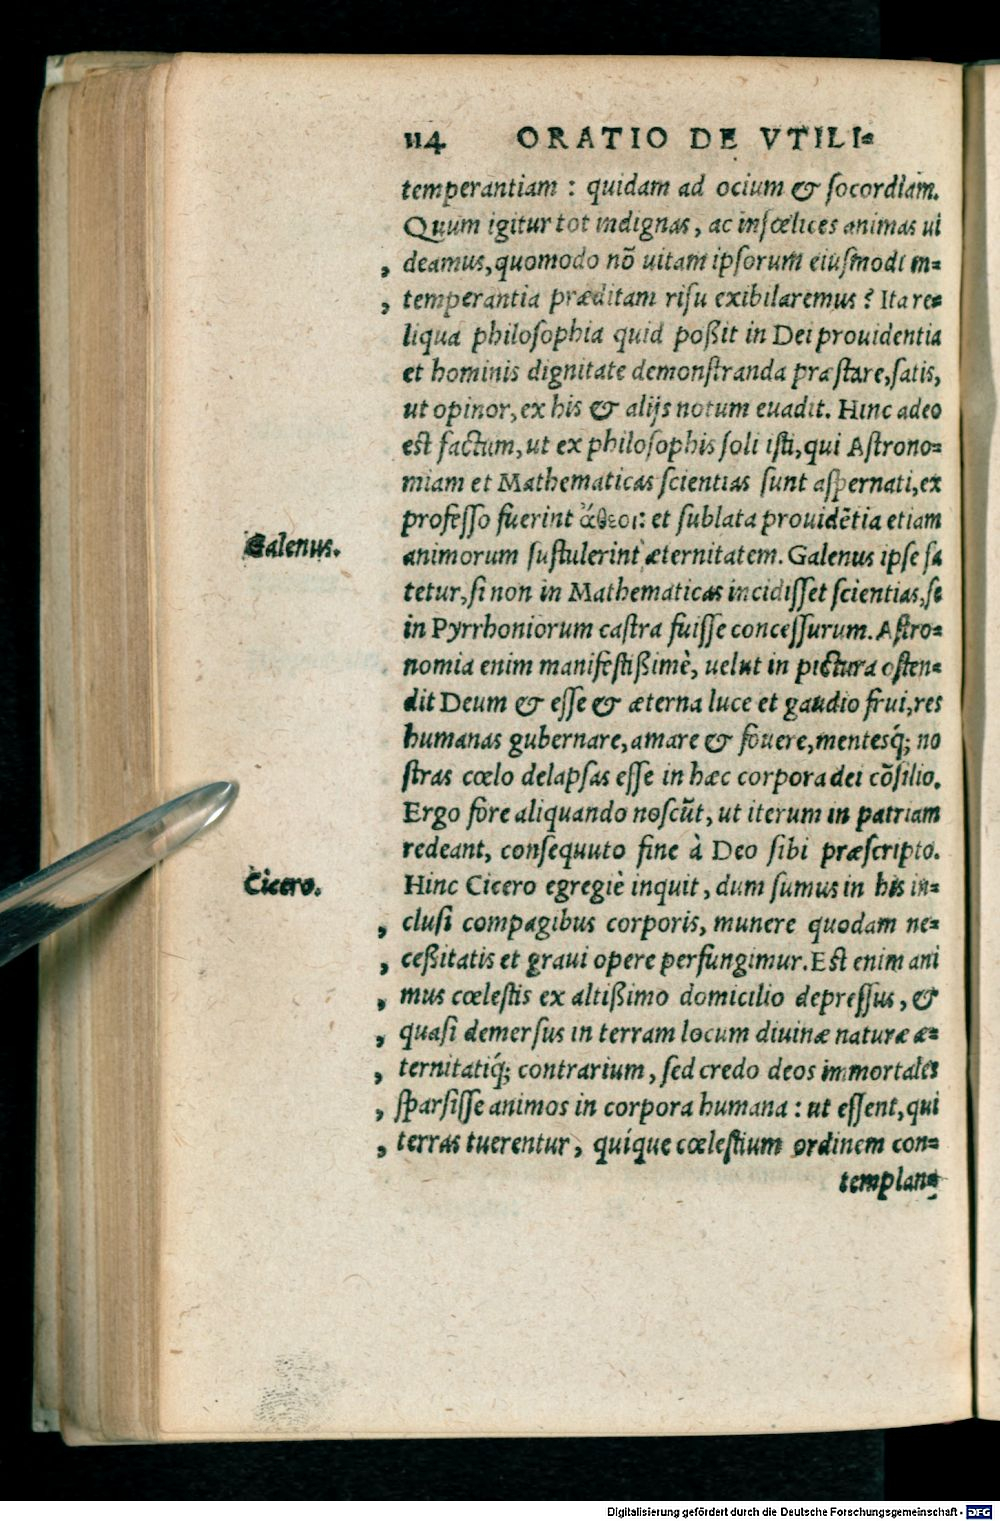 114 ORATIO DE VTILI-
temperantiam : quidam ad ocium & socordiam.
Quum igitur tot indignas, ac infœlices animas ui
, deamus, quomodo nõ uitam ipsorum eiusmodi in-
, temperantia præditam risu exibilaremus? Ita re-
liqua philosophia quid poßit in Dei prouidentia
et hominis dignitate demonstranda præstare, satis,
ut opinor, ex his & alijs notum euadit. Hinc adeo
est factum, ut ex philosophis soli isti, qui Astrono-
miam et Mathematicas scientias sunt aspernati, ex
professo fuerint ἄθεοι: et sublata prouidẽtia etiam
Galenus.
animorum sustulerint æternitatem. Galenus ipse fa
tetur, si non in Mathematicas incidisset scientias, se
in Pyrrhoniorum castra fuisse concessurum. Astro-
nomia enim manifestißimè, uelut in pictura osten-
dit Deum & esse & æterna luce et gaudio frui, res
humanas gubernare, amare & fouere, mentesq́; no
stras cœlo delapsas esse in hæc corpora dei cõsilio.
Ergo fore aliquando noscũt, ut iterum in patriam
redeant, consequuto fine à Deo sibi præscripto.
Cicero.
Hinc Cicero egregiè inquit, dum sumus in his in-
, clusi compagibus corporis, munere quodam ne-
, ceßitatis et graui opere perfungimur. Est enim ani
, mus cœlestis ex altißimo domicilio depressus, &
, quasi demersus in terram locum diuinæ naturæ æ-
, ternitatiq́; contrarium, sed credo deos immortales
, sparsisse animos in corpora humana : ut essent, qui
, terras tuerentur, quíque cœlestium ordinem con-
templan-
Digitalisierung gefördert durch die Deutsche Forschungsgemeinschaft - DFG